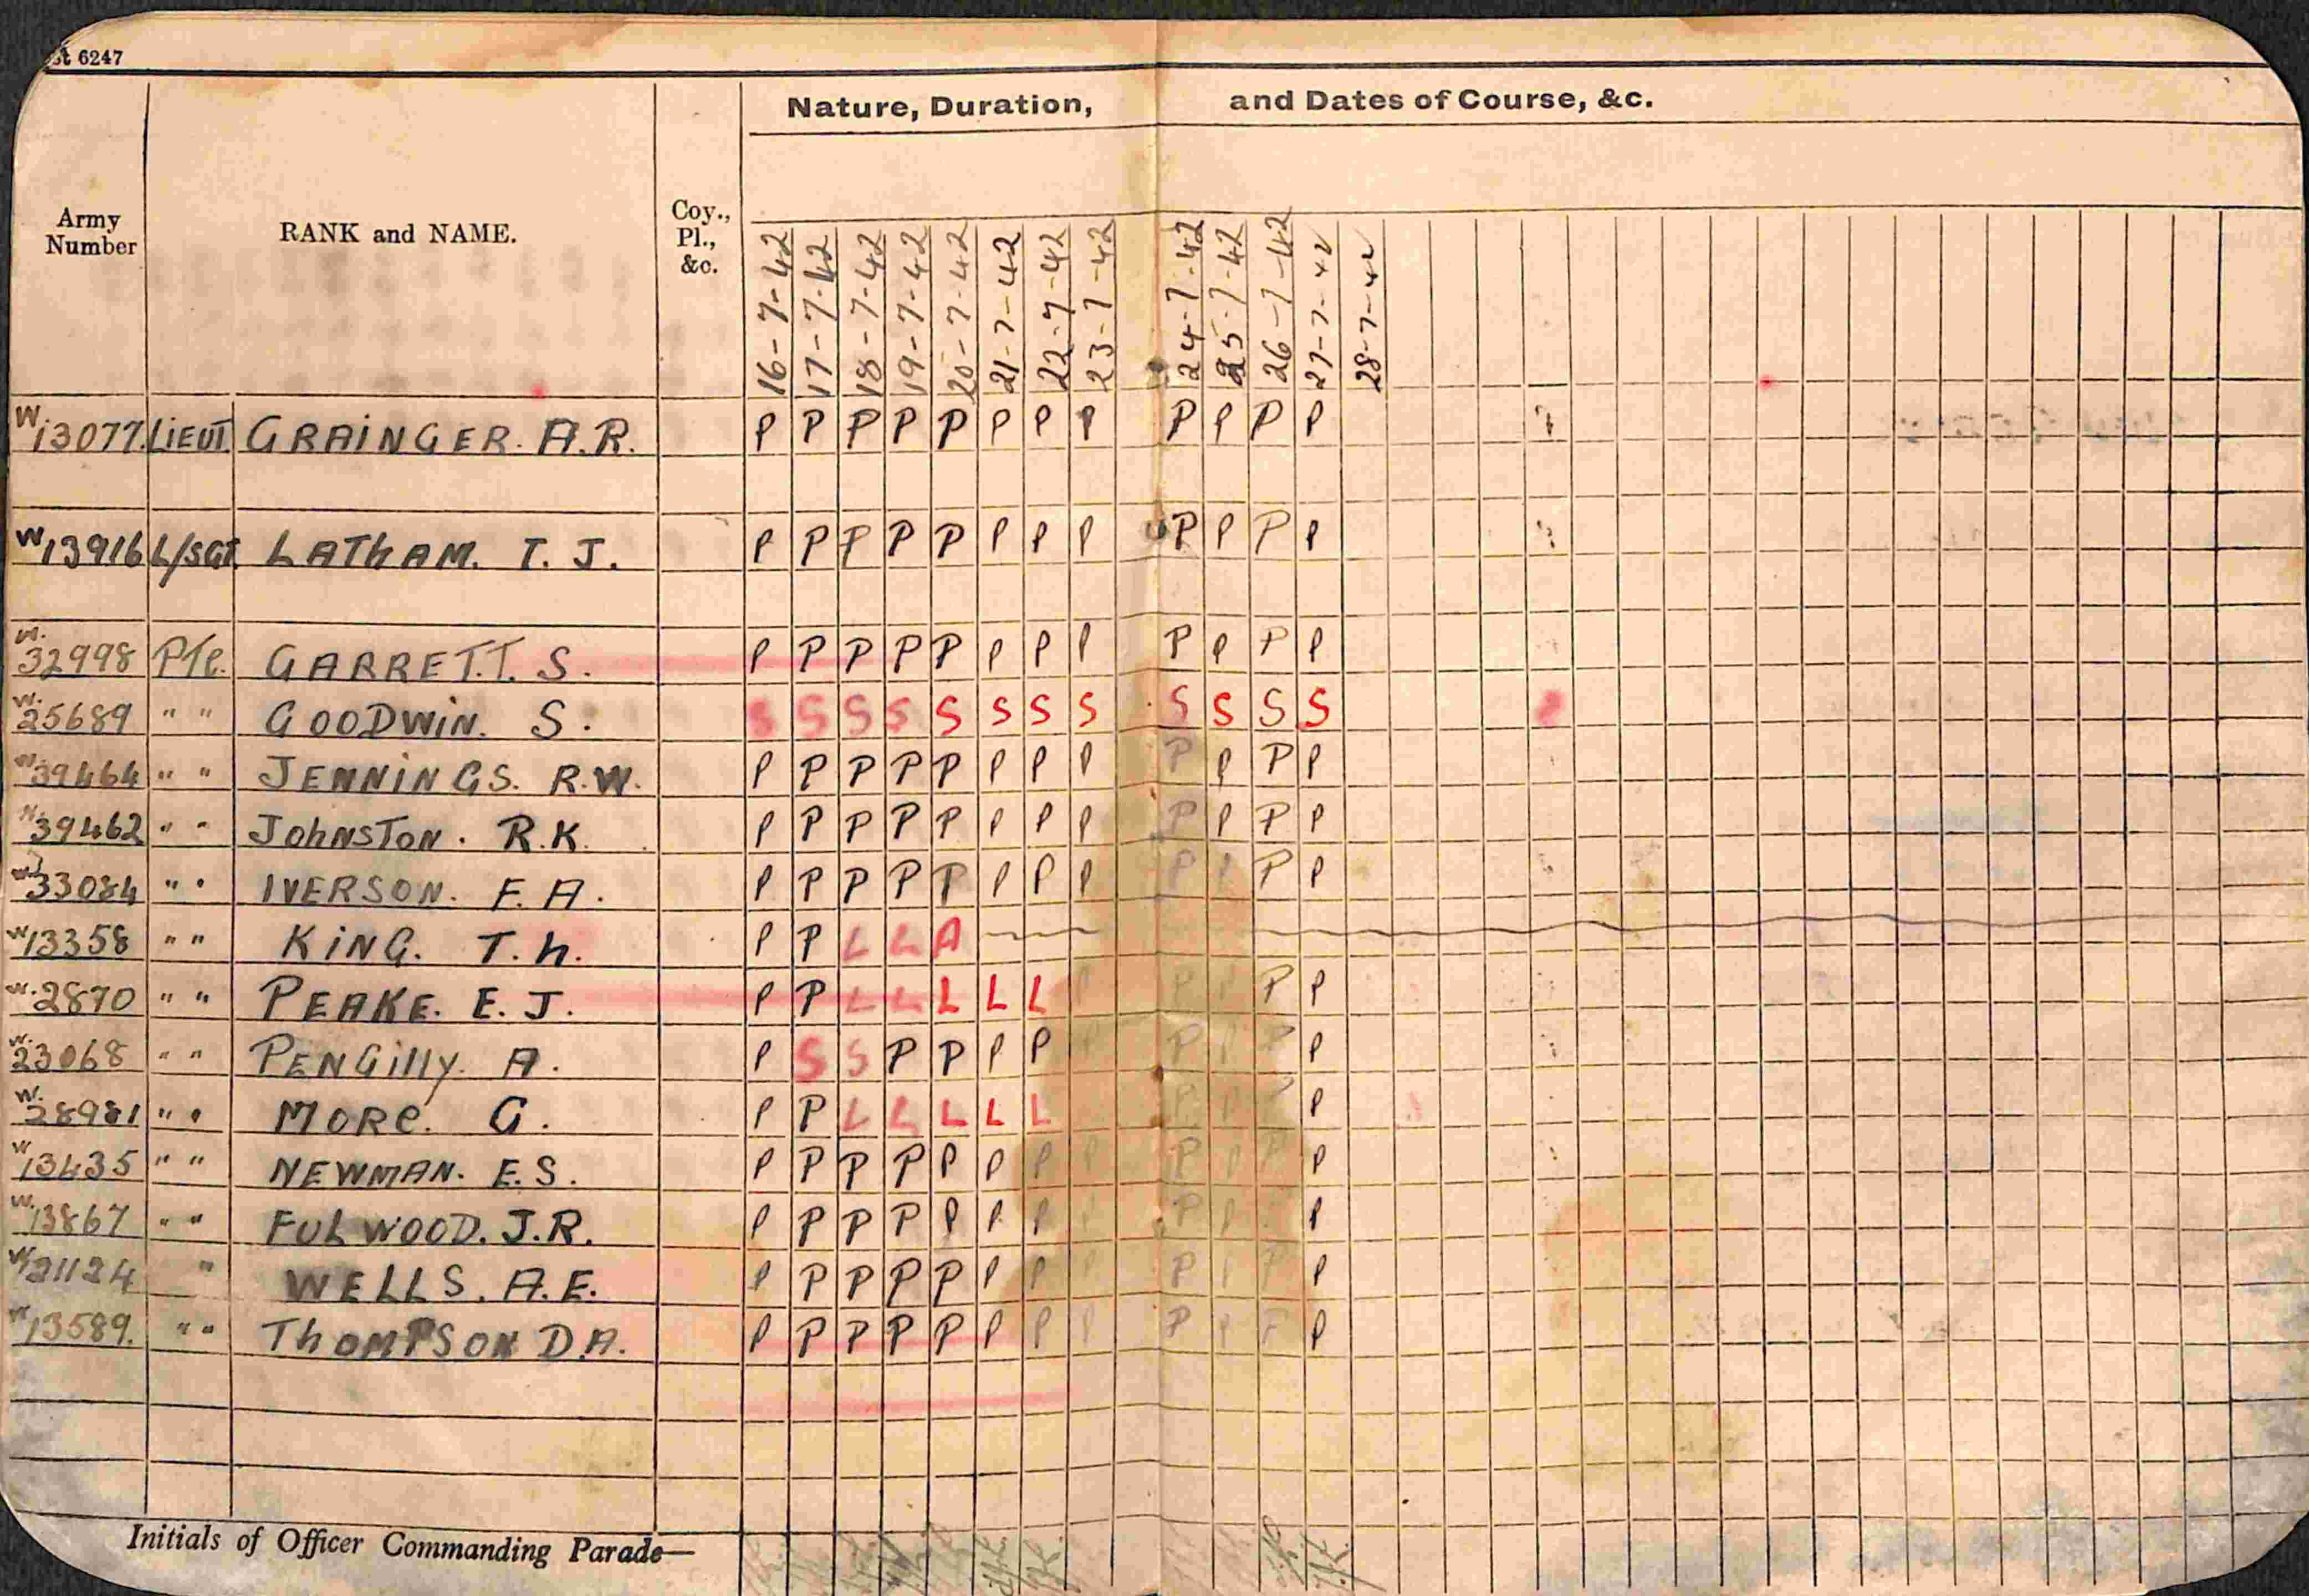 6247
Nature, Duration, and Dates of Course, &c.
Army Number RANK and NAME. Coy., Pl., &c. 16-7-42 17-7-42 18-7-42 19-7-42 20-7-42 21-7-42 22-7-42 23-7-42 24-7-42 25-7-42 26-7-42 27-7-42 28-7-42
W13077. LIEUT. GRAINGER. A.R. P P P P P P P P P P P P
W13916 L/SGT. LATHAM. T. J. P P P P P P P P P P P P
W.32998 PTE. GARRETT. S. P P P P P P P P P P P P
W.25689 " " GOODWIN. S. S S S S S S S S S S S S
W39464 " " JENNINGS. R.W. P P P P P P P P P P P P
39462 " " JOHNSTON. R.K. P P P P P P P P P P P P
W33084 " " IVERSON. F. A. P P P P P P P P P P P P
W13358 " " KING. T. H. P P L L A
W.2870 " " PEAKE. E. J. P P L L L L L P P P P P
W.23068 " " PENGILLY. A. P S S P P P P P P P P P
W.28981 " " MORE. G. P P L L L L L P P P P
W13435 " " NEWMAN. E.S. P P P P P P P P P P P P
W.13867 " " FULWOOD. J.R. P P P P P P P P P P P
W21124 " WELLS. A.E. P P P P P P P P P P P P
W13589. " " THOMPSON D.A. P P P P P P P P P P P P
Initials of Officer Commanding Parade—